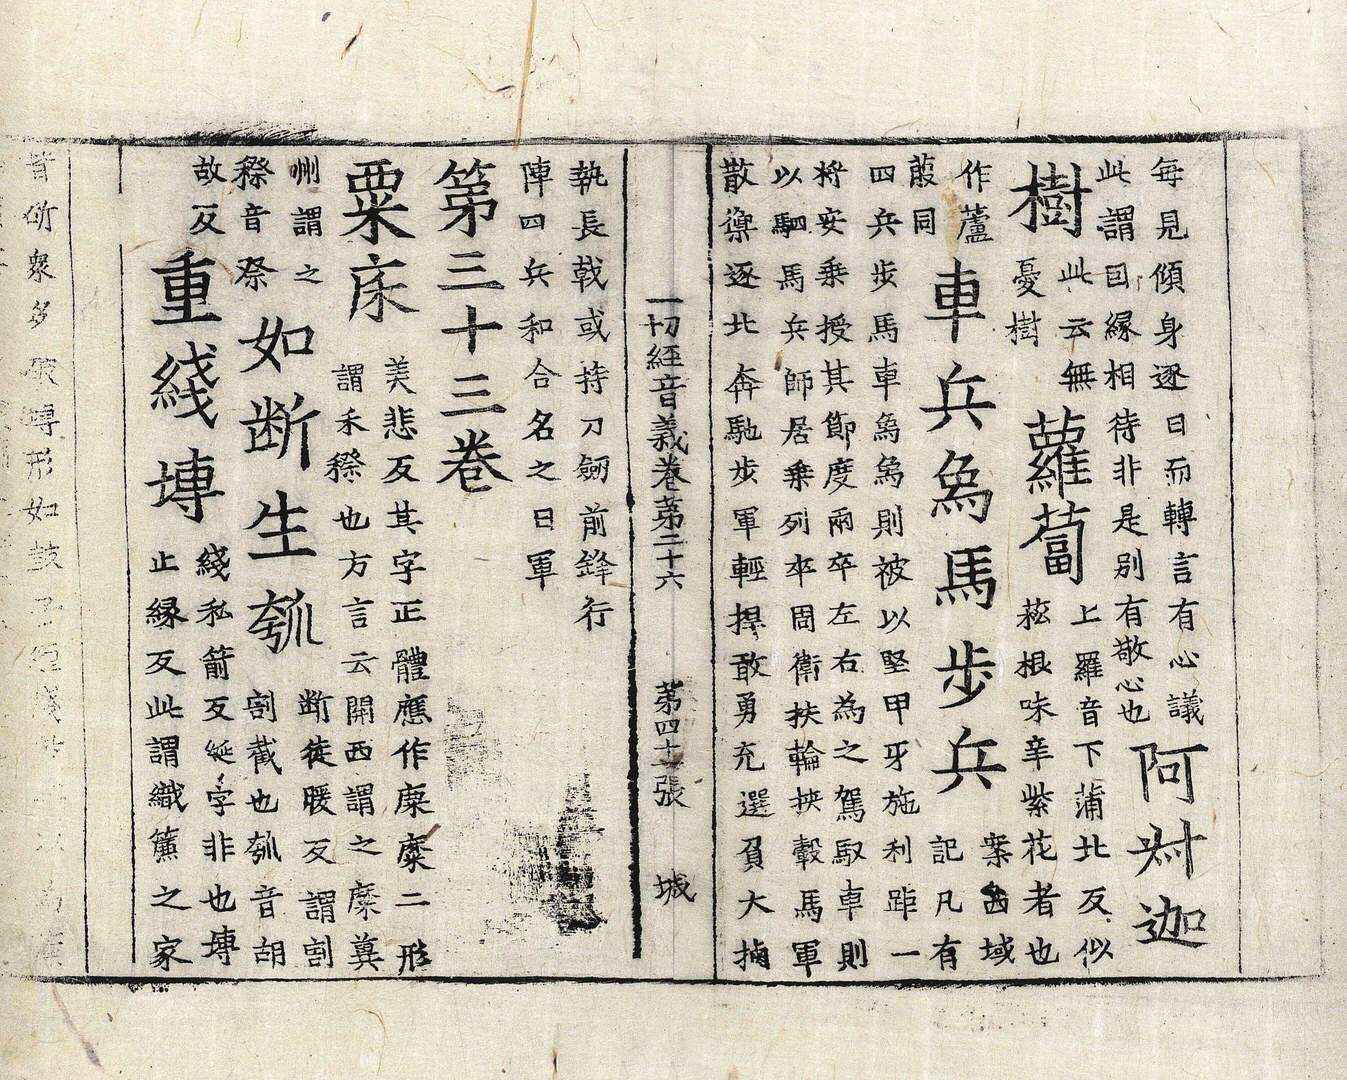 每見傾身逐日而轉言有心議
此謂因縁相待非是别有敬心也
阿叔迦
樹
此云無
憂樹
蘿蔔
上羅音下蒲北反似
菘根味辛紫花者也
作蘆
菔同
車兵象馬步兵
案西域
記凡有
四兵步馬車象象則被以堅甲牙施利距一
將安乗授其節度兩卒左右為之駕馭車則
以駟馬兵師居乗列卒周衛扶輪挾轂馬軍
散禦逐北奔馳步軍輕捍敢勇充選負大櫓
一切經音義卷第二十六 第四十張 城
執長戟或持刀劒前鋒行
陣四兵和合名之曰軍
第三十三卷
粟床
美悲反其字正體應作糜𪎭二形
謂禾穄也方言云關西謂之糜兾
州謂之
穄音祭
如断生瓠
断徒暖反謂割
割截也瓠音胡
故反
重綫塼
綫私箭反綖字非也塼
止縁反此謂織簾之家
音斫衆多 塼形如鼓